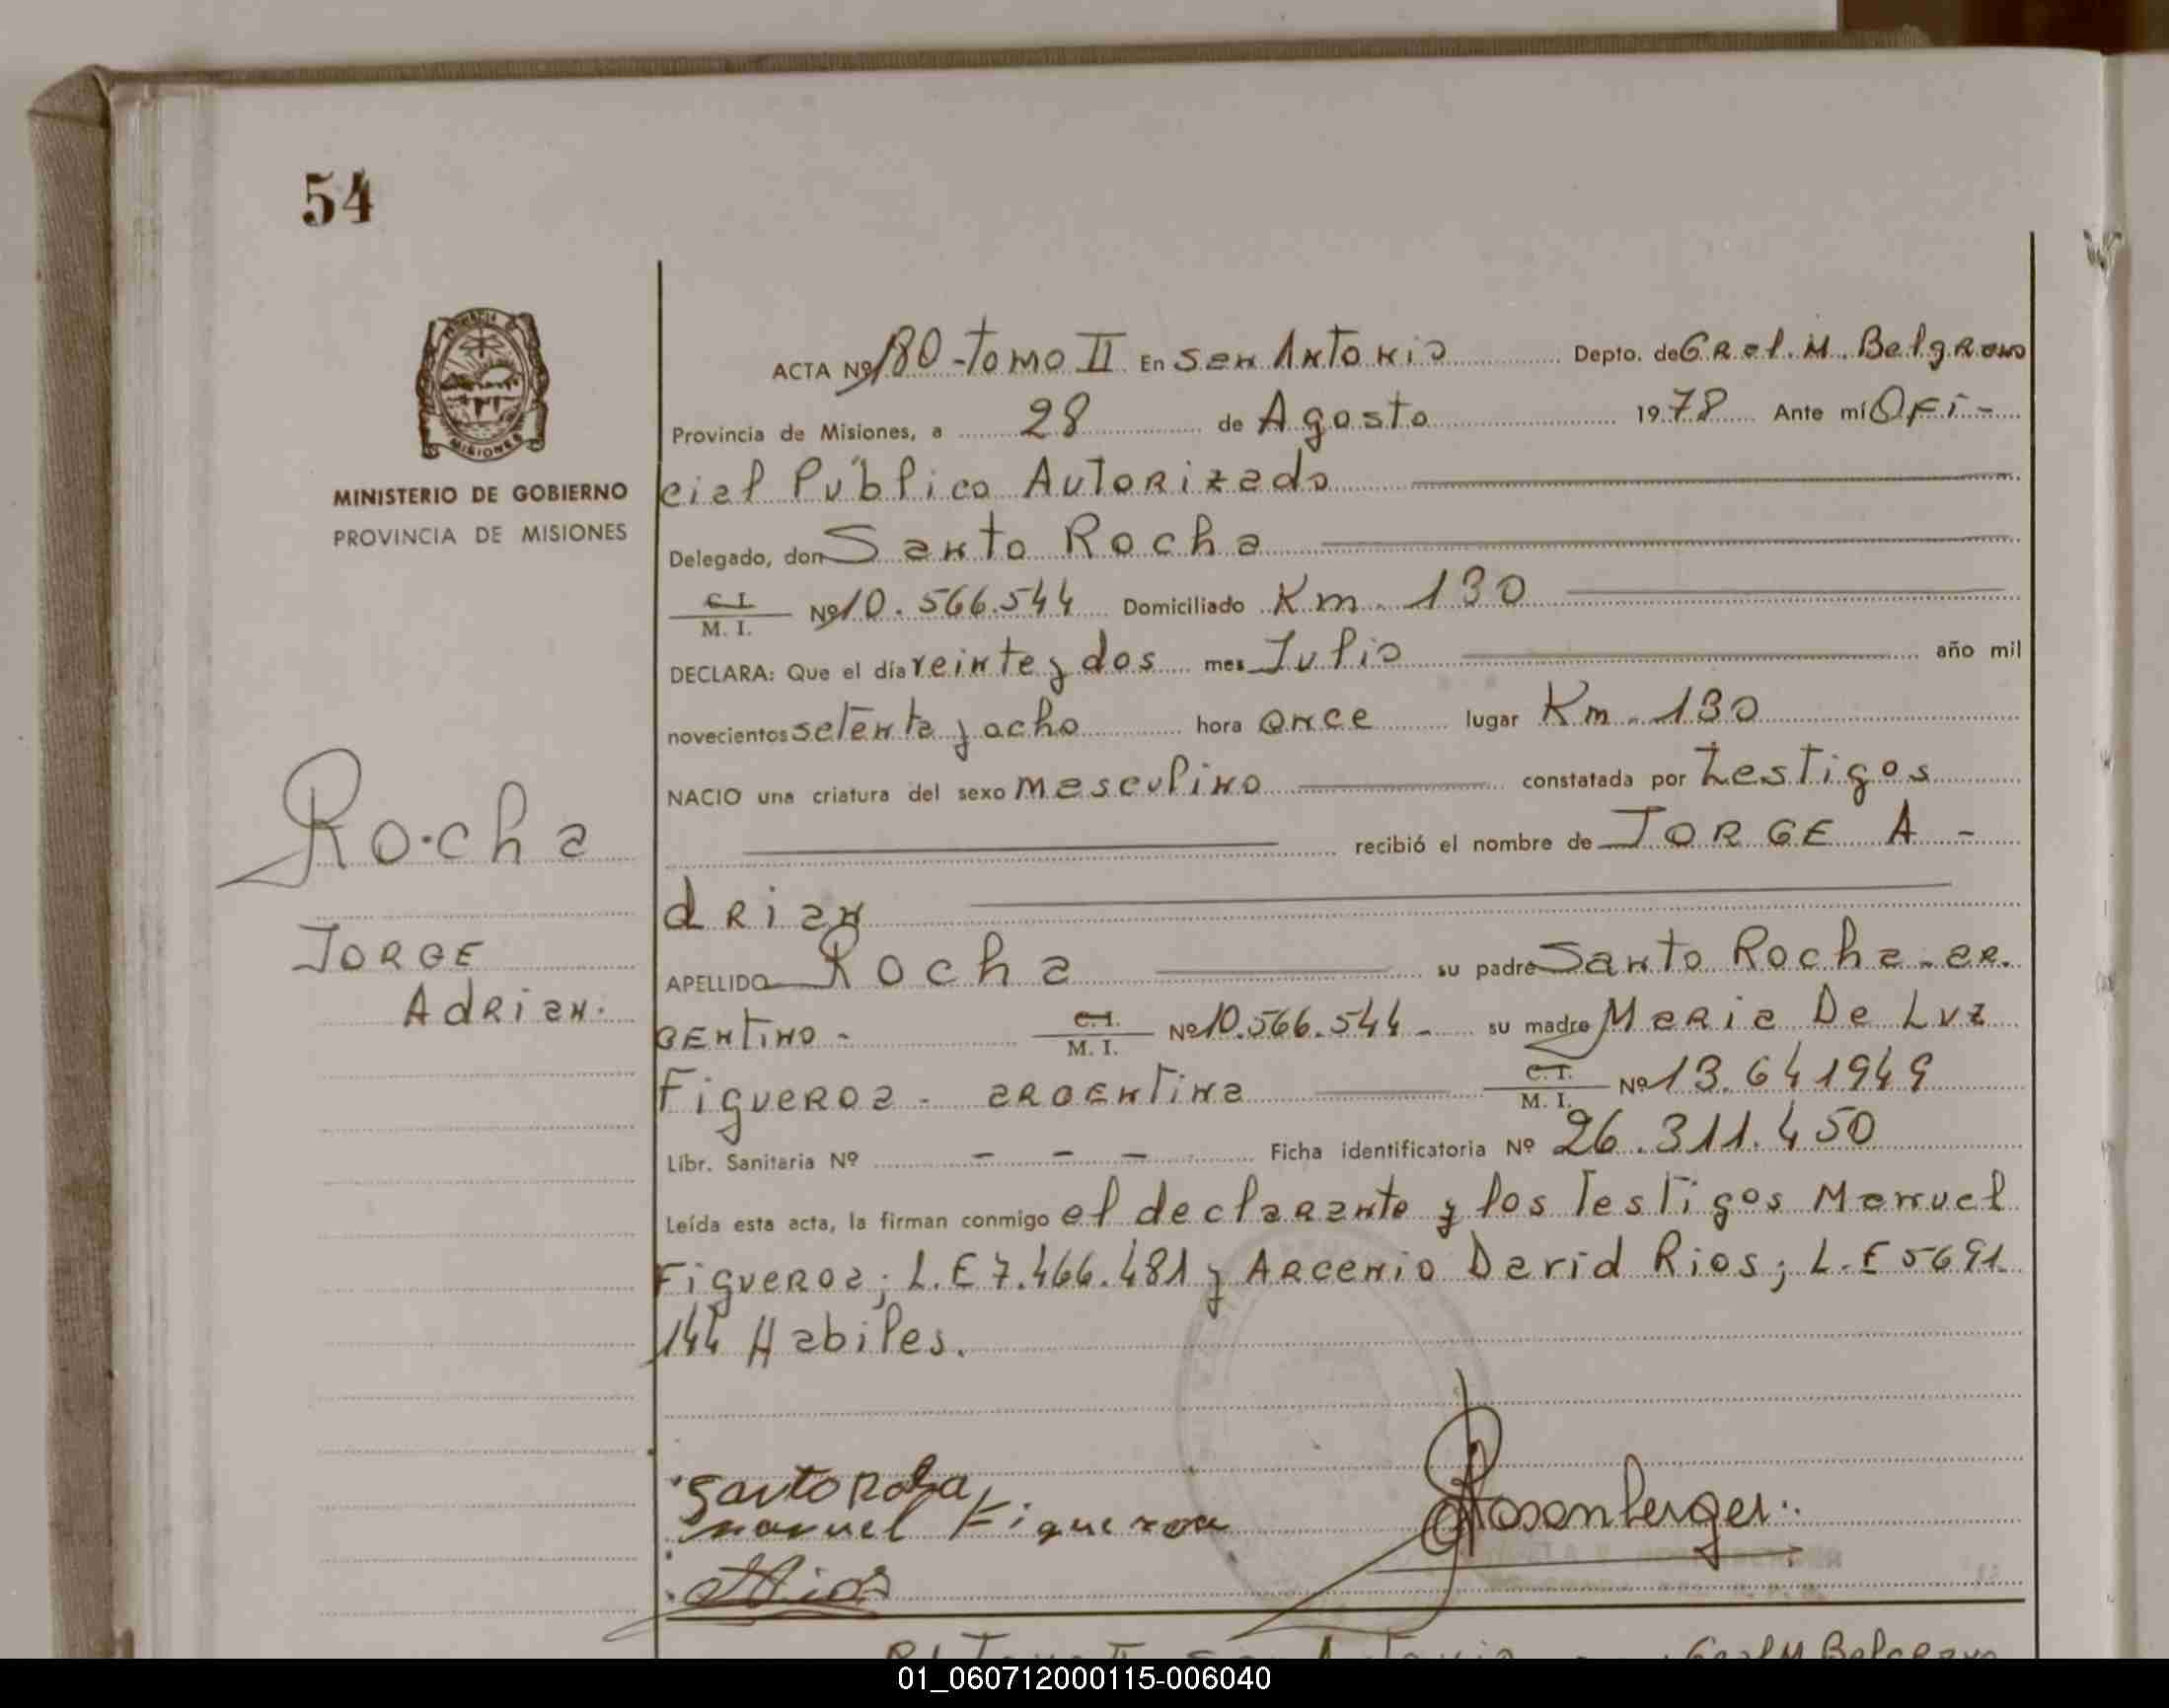 54
ACTA Nº 180-Tomo II En San Antonio Depto. de Gral. M. Belgrano
Provincia de Misiones, a 28 de Agosto 1978 Ante mí Ofi-
MINISTERIO DE GOBIERNO
PROVINCIA DE MISIONES
cial Público Autorizado
Delegado, don Santo Rocha
C. I. / M. I. Nº 10.566.544 Domiciliado Km. 130
DECLARA: Que el día veinte y dos mes Julio año mil
novecientos setenta y ocho hora once lugar Km. 130
NACIO una criatura del sexo masculino constatada por Testigos
recibió el nombre de JORGE A-
drian
Rocha
JORGE
Adrian.
APELLIDO Rocha su padre Santo Rocha - ar.
gentino - C. I. / M. I. Nº 10.566.544 - su madre Maria De Luz
Figueroa - argentina C. I. / M. I. Nº 13.641949
Libr. Sanitaria Nº - - - Ficha identificatoria Nº 26.311.450
Leída esta acta, la firman conmigo el declarante y los Testigos Manuel
Figueroa; L.E 7.466.481 y Arcenio David Rios; L.E 5691
144 Habiles.
Santo Rocha
manuel Figueroa
Rios
Rosenberger
MISIONES
01_060712000115-006040